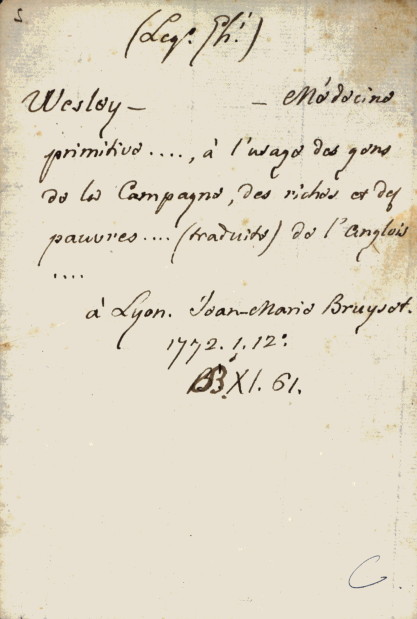 (Leg. Ph.)
Wesley — — Médecine
primitive ...., à l'usage des gens
de la Campagne, des riches et des
pauvres .... (traduite) de l'anglois
....
à Lyon. Jean-Marie Bruyset.
1772. 1. 12°.
BB XI. 61.
C